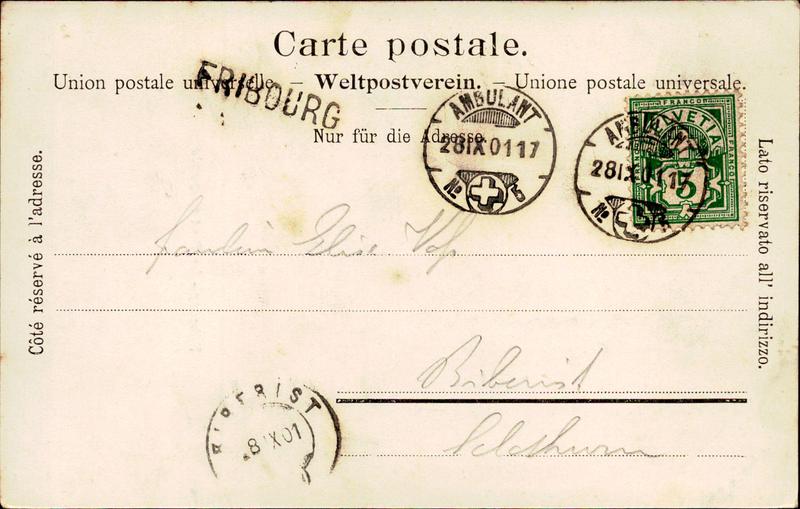 Carte postale.
Union postale universelle. – Weltpostverein. – Unione postale universale.
FRIBOURG
Nur für die Adresse.
AMBULANT
28 IX 01 17
No 5
AMBULANT
28 IX 01 17
No
FRANCO
HELVETIA
FRANCO
5
Côté réservé à l'adresse.
Lato riservato all' indirizzo.
Fräulein Elise
Biberist
Solothurn
BIBERIST
8 IX 01